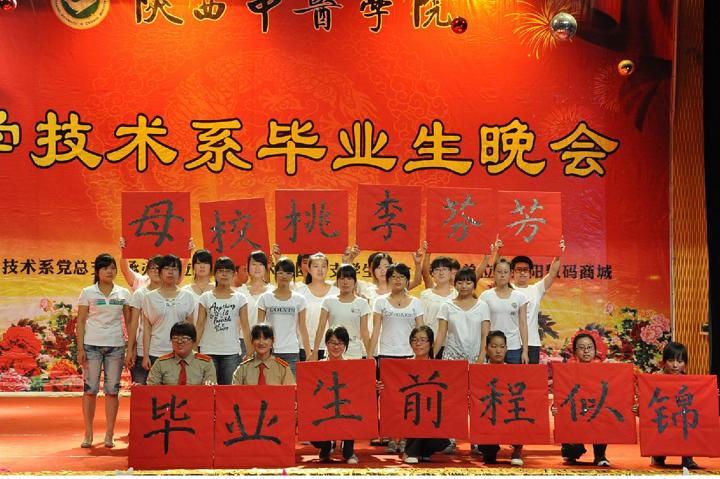 陕西中醫学院
学技术系毕业生晚会
母校桃李芬芳
技术系党总支
码商城
毕业生前程似锦